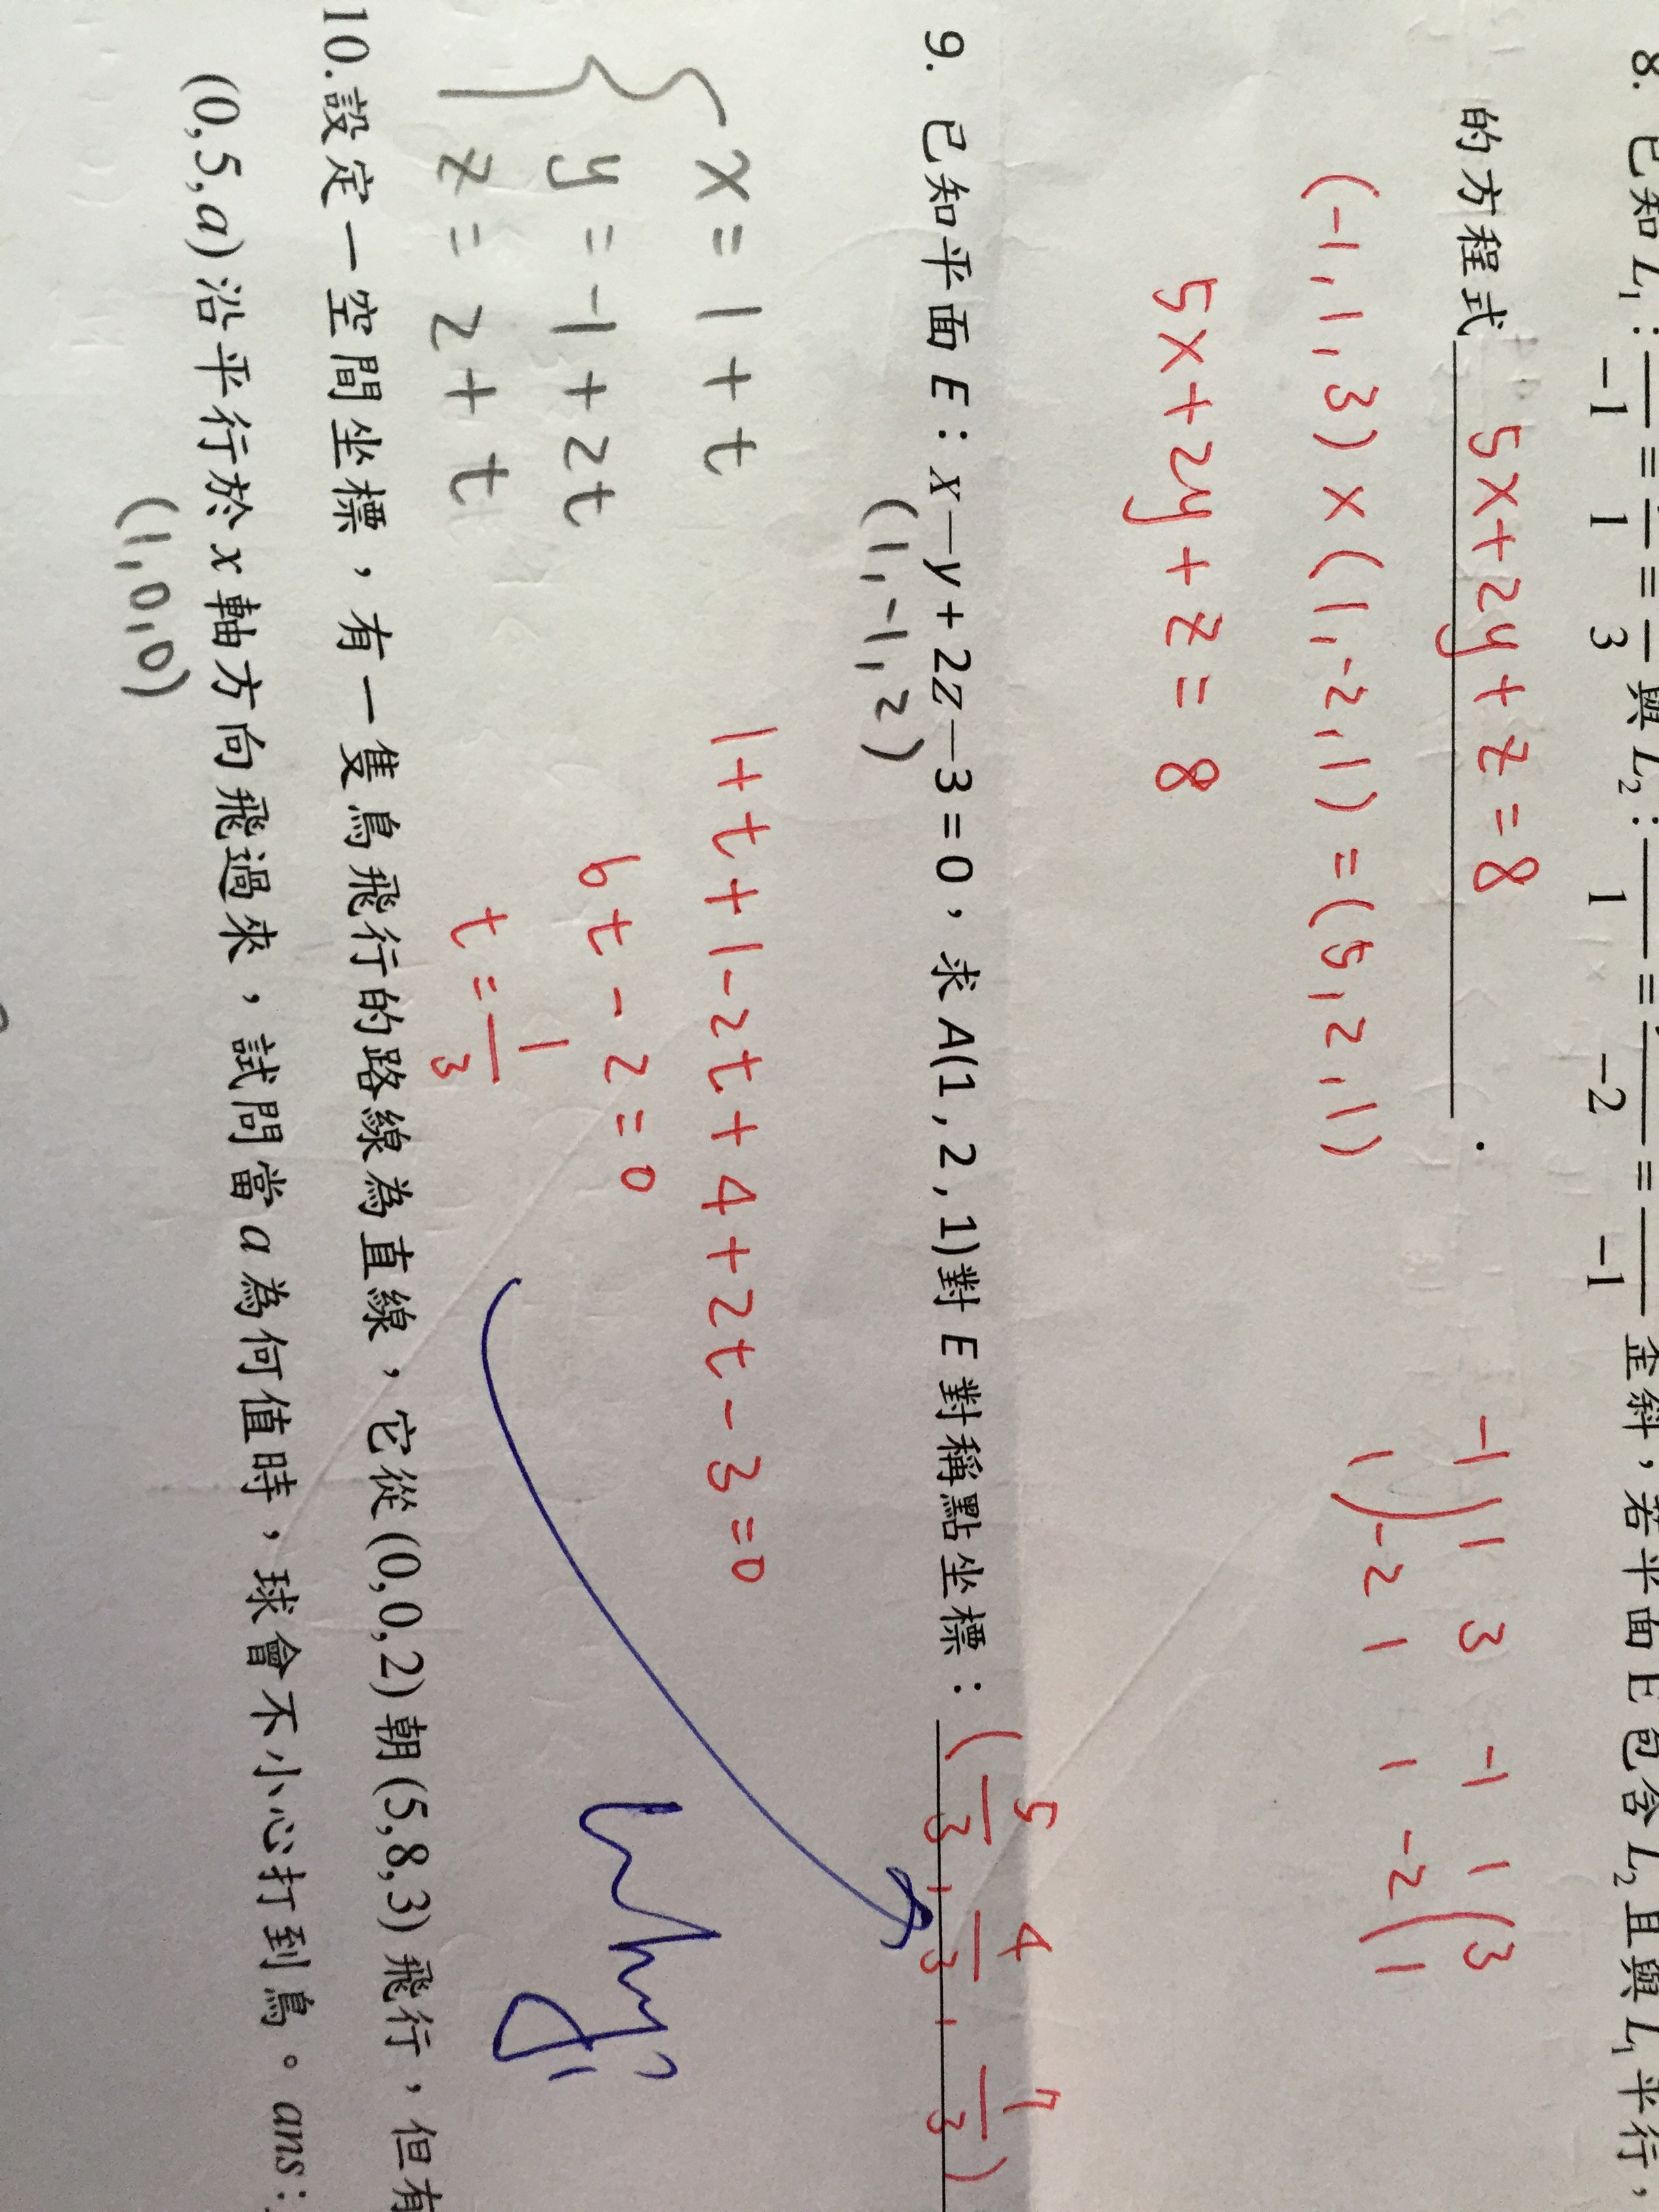 8. 已知 L₁：—/-1 = —/1 = —/3 與 L₂：—/1 = —/-2 = —/-1 歪斜，若平面 E 包含 L₂ 且與 L₁ 平行，
的方程式 5x+2y+z=8 .
(-1,1,3)×(1,-2,1)=(5,2,1)
-1 1 3 -1 1 3
1 -2 1 1 -2 1
5x+2y+z=8
9. 已知平面 E：x-y+2z-3=0，求 A(1,2,1)對 E 對稱點坐標：(5/3, 4/3, 7/3)
(1,-1,2)
x=1+t
y=-1+2t
z=2+t
1+t+1-2t+4+2t-3=0
6t-2=0
t=1/3
why?
10.設定一空間坐標，有一隻鳥飛行的路線為直線，它從(0,0,2)朝(5,8,3)飛行，但有
(0,5,a)沿平行於 x 軸方向飛過來，試問當 a 為何值時，球會不小心打到鳥。ans：
(1,0,0)